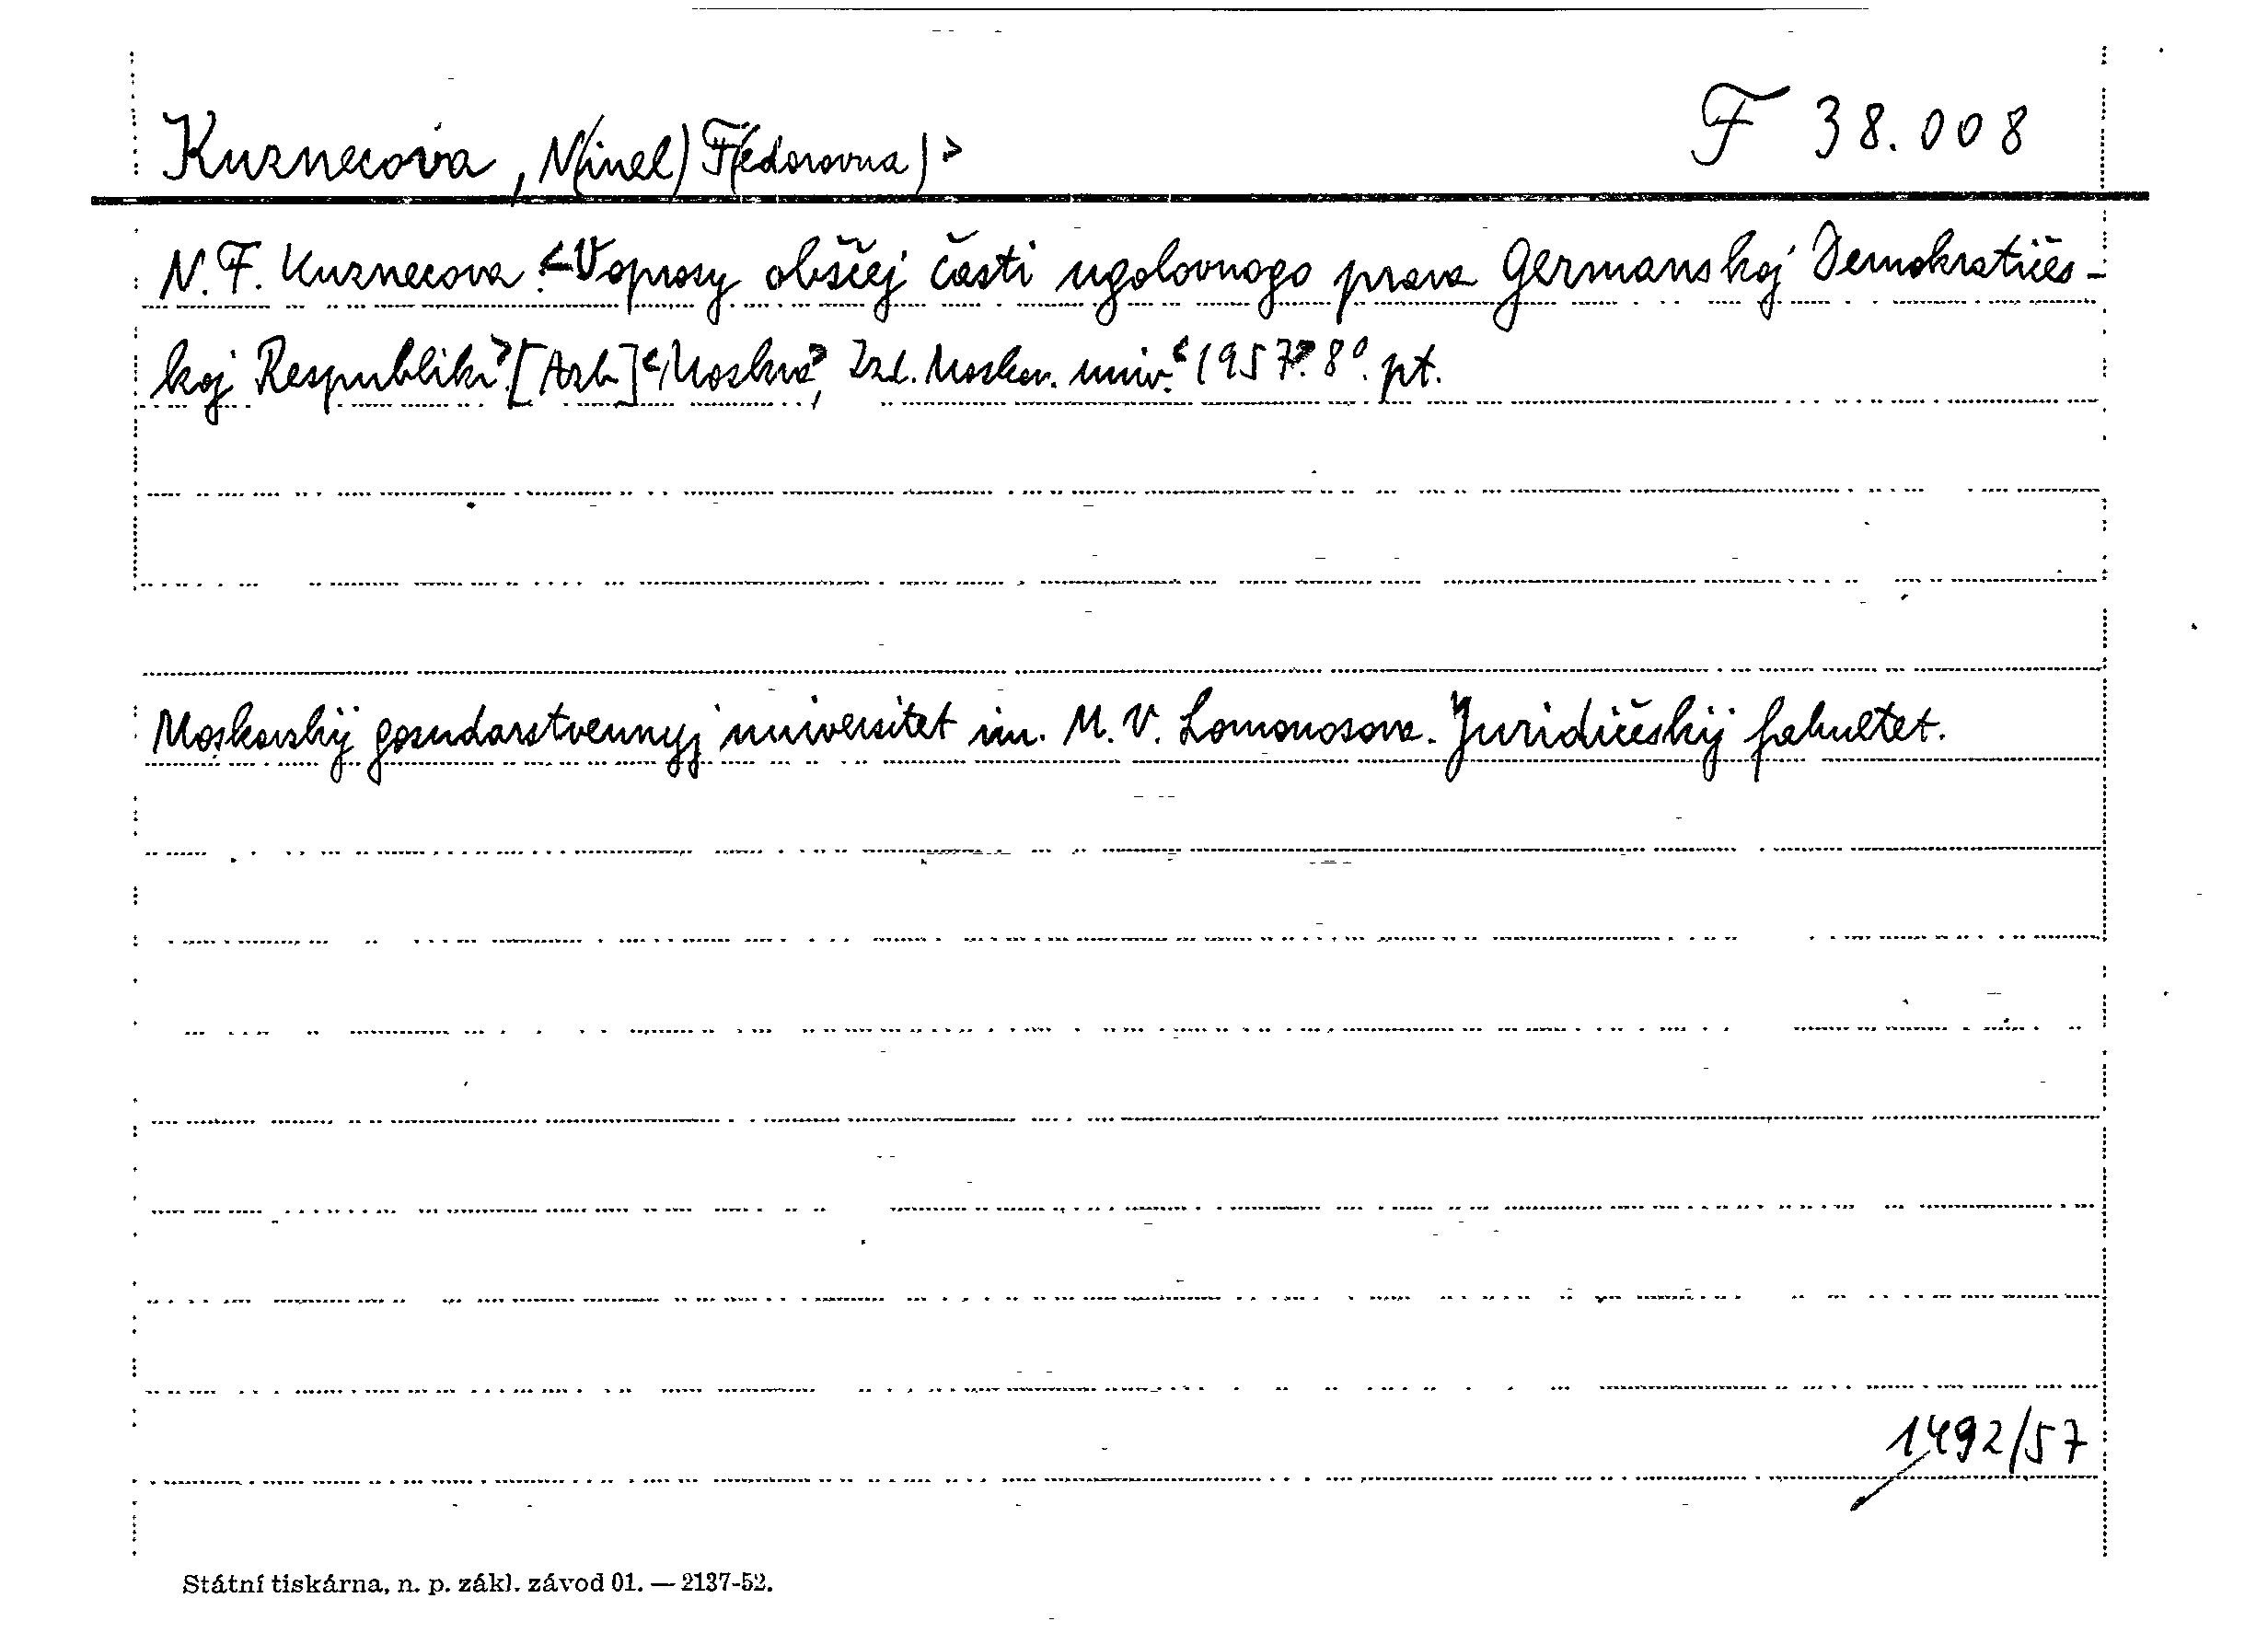 Kuznecova, N(inel) F(edorovna)> F 38.008
N. F. Kuznecova: <Voprosy obščej časti ugolovnogo prava Germanskoj Demokratičes-
koj Respubliki>. [Azb] <Moskva>, Izd. Moskov. univ. <1957>. 8°. pt.
Moskovskij gosudarstvennyj universitet im. M. V. Lomonosova. Juridičeskij fakultet.
1492/57
Státní tiskárna, n. p. zákl. závod 01. — 2137-52.